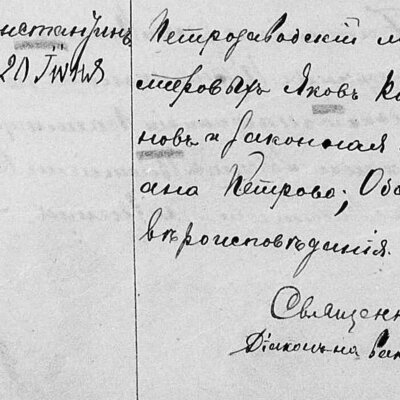 нстантинъ
20 Іюня
Петрозаводскій м
теровыхъ Яковъ Ко
новъ и законная
ана Петрова; Обо
вѣроисповѣданія.
Священн
Діаконъ на вак